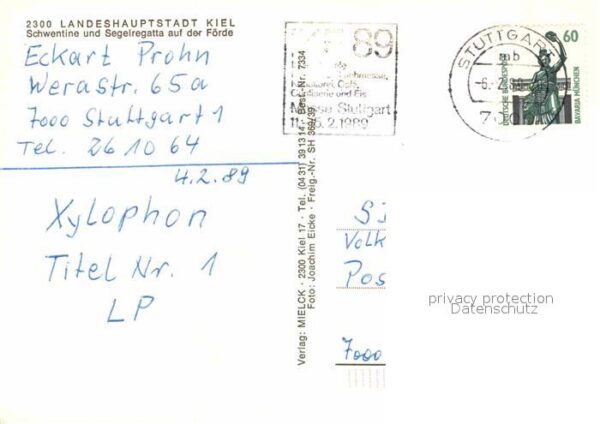 2300 LANDESHAUPTSTADT KIEL
Schwentine und Segelregatta auf der Förde
Eckart Prohn
Werastr. 65a
7000 Stuttgart 1
Tel. 26 10 64
4.2.89
Xylophon
Titel Nr. 1
LP
Verlag: MIELCK · 2300 Kiel 17 · Tel. (0431) 391314 · Best.-Nr. 7334
Foto: Joachim Eicke · Freig.-Nr. SH 369/39
89
Messe Stuttgart
2.1989
STUTTGART
mb
-6.2.89
60
DEUTSCHE BUNDESPOST
BAVARIA MÜNCHEN
Volk
Pos
7000
privacy protection
Datenschutz